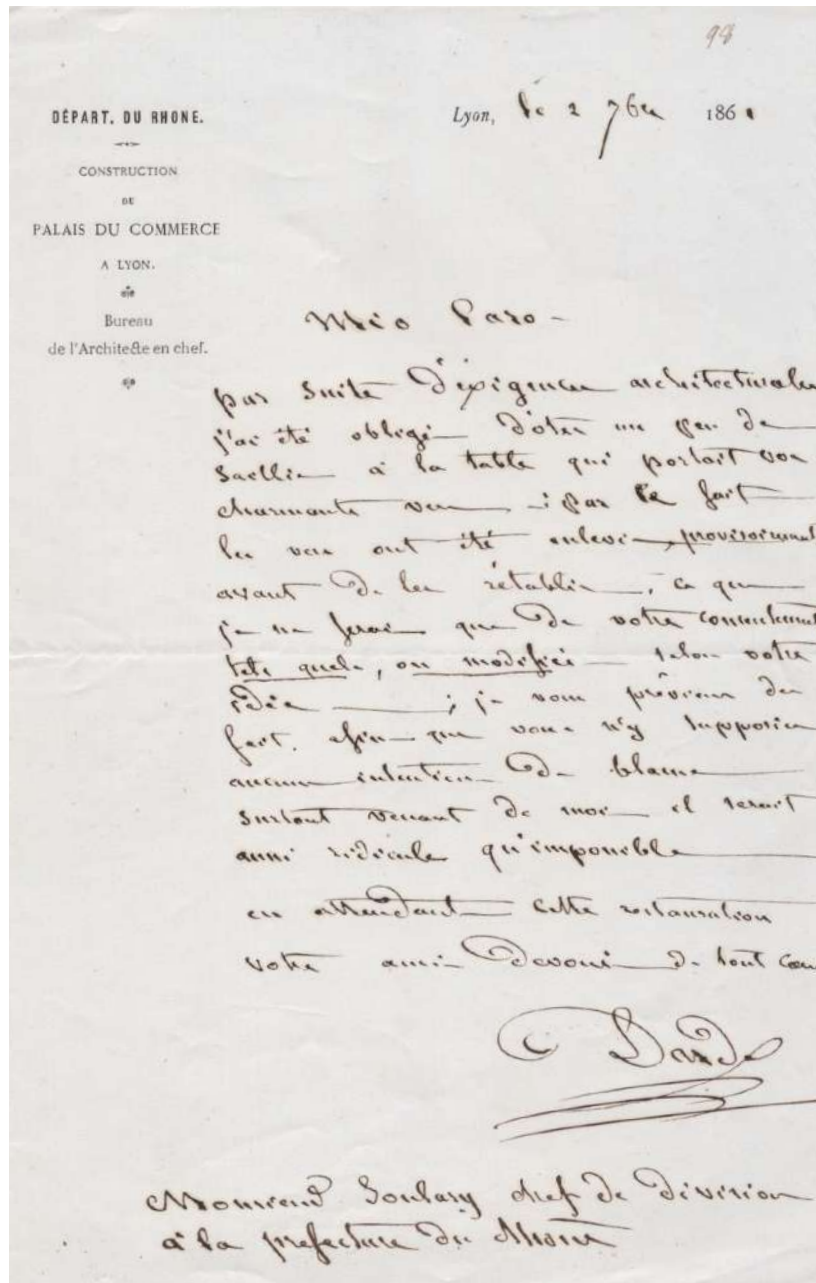 98
DÉPART. DU RHONE.
CONSTRUCTION
DU
PALAIS DU COMMERCE
A LYON.
Bureau
de l'Architecte en chef.
Lyon, le 2 7bre 1861
Mio Caro -
par suite d'exigences architecturales
j'ai été obligé d'oter un peu de
saillie à la table qui portait vos
charmants vers - ; par ce fait
les vers ont été enlevés provisoirement
avant de les rétablir, ce que
je ne ferai que de votre consentement
tels quels, ou modifiés selon votre
idée ; je vous préviens du
fait, afin que vous n'y supposiez
aucune intention de blame
surtout venant de moi il serait
aussi ridicule qu'impossible
en attendant cette restauration
votre ami devoué de tout coeur
Dardel
Monsieur Soulary chef de division
à la prefecture du Rhône